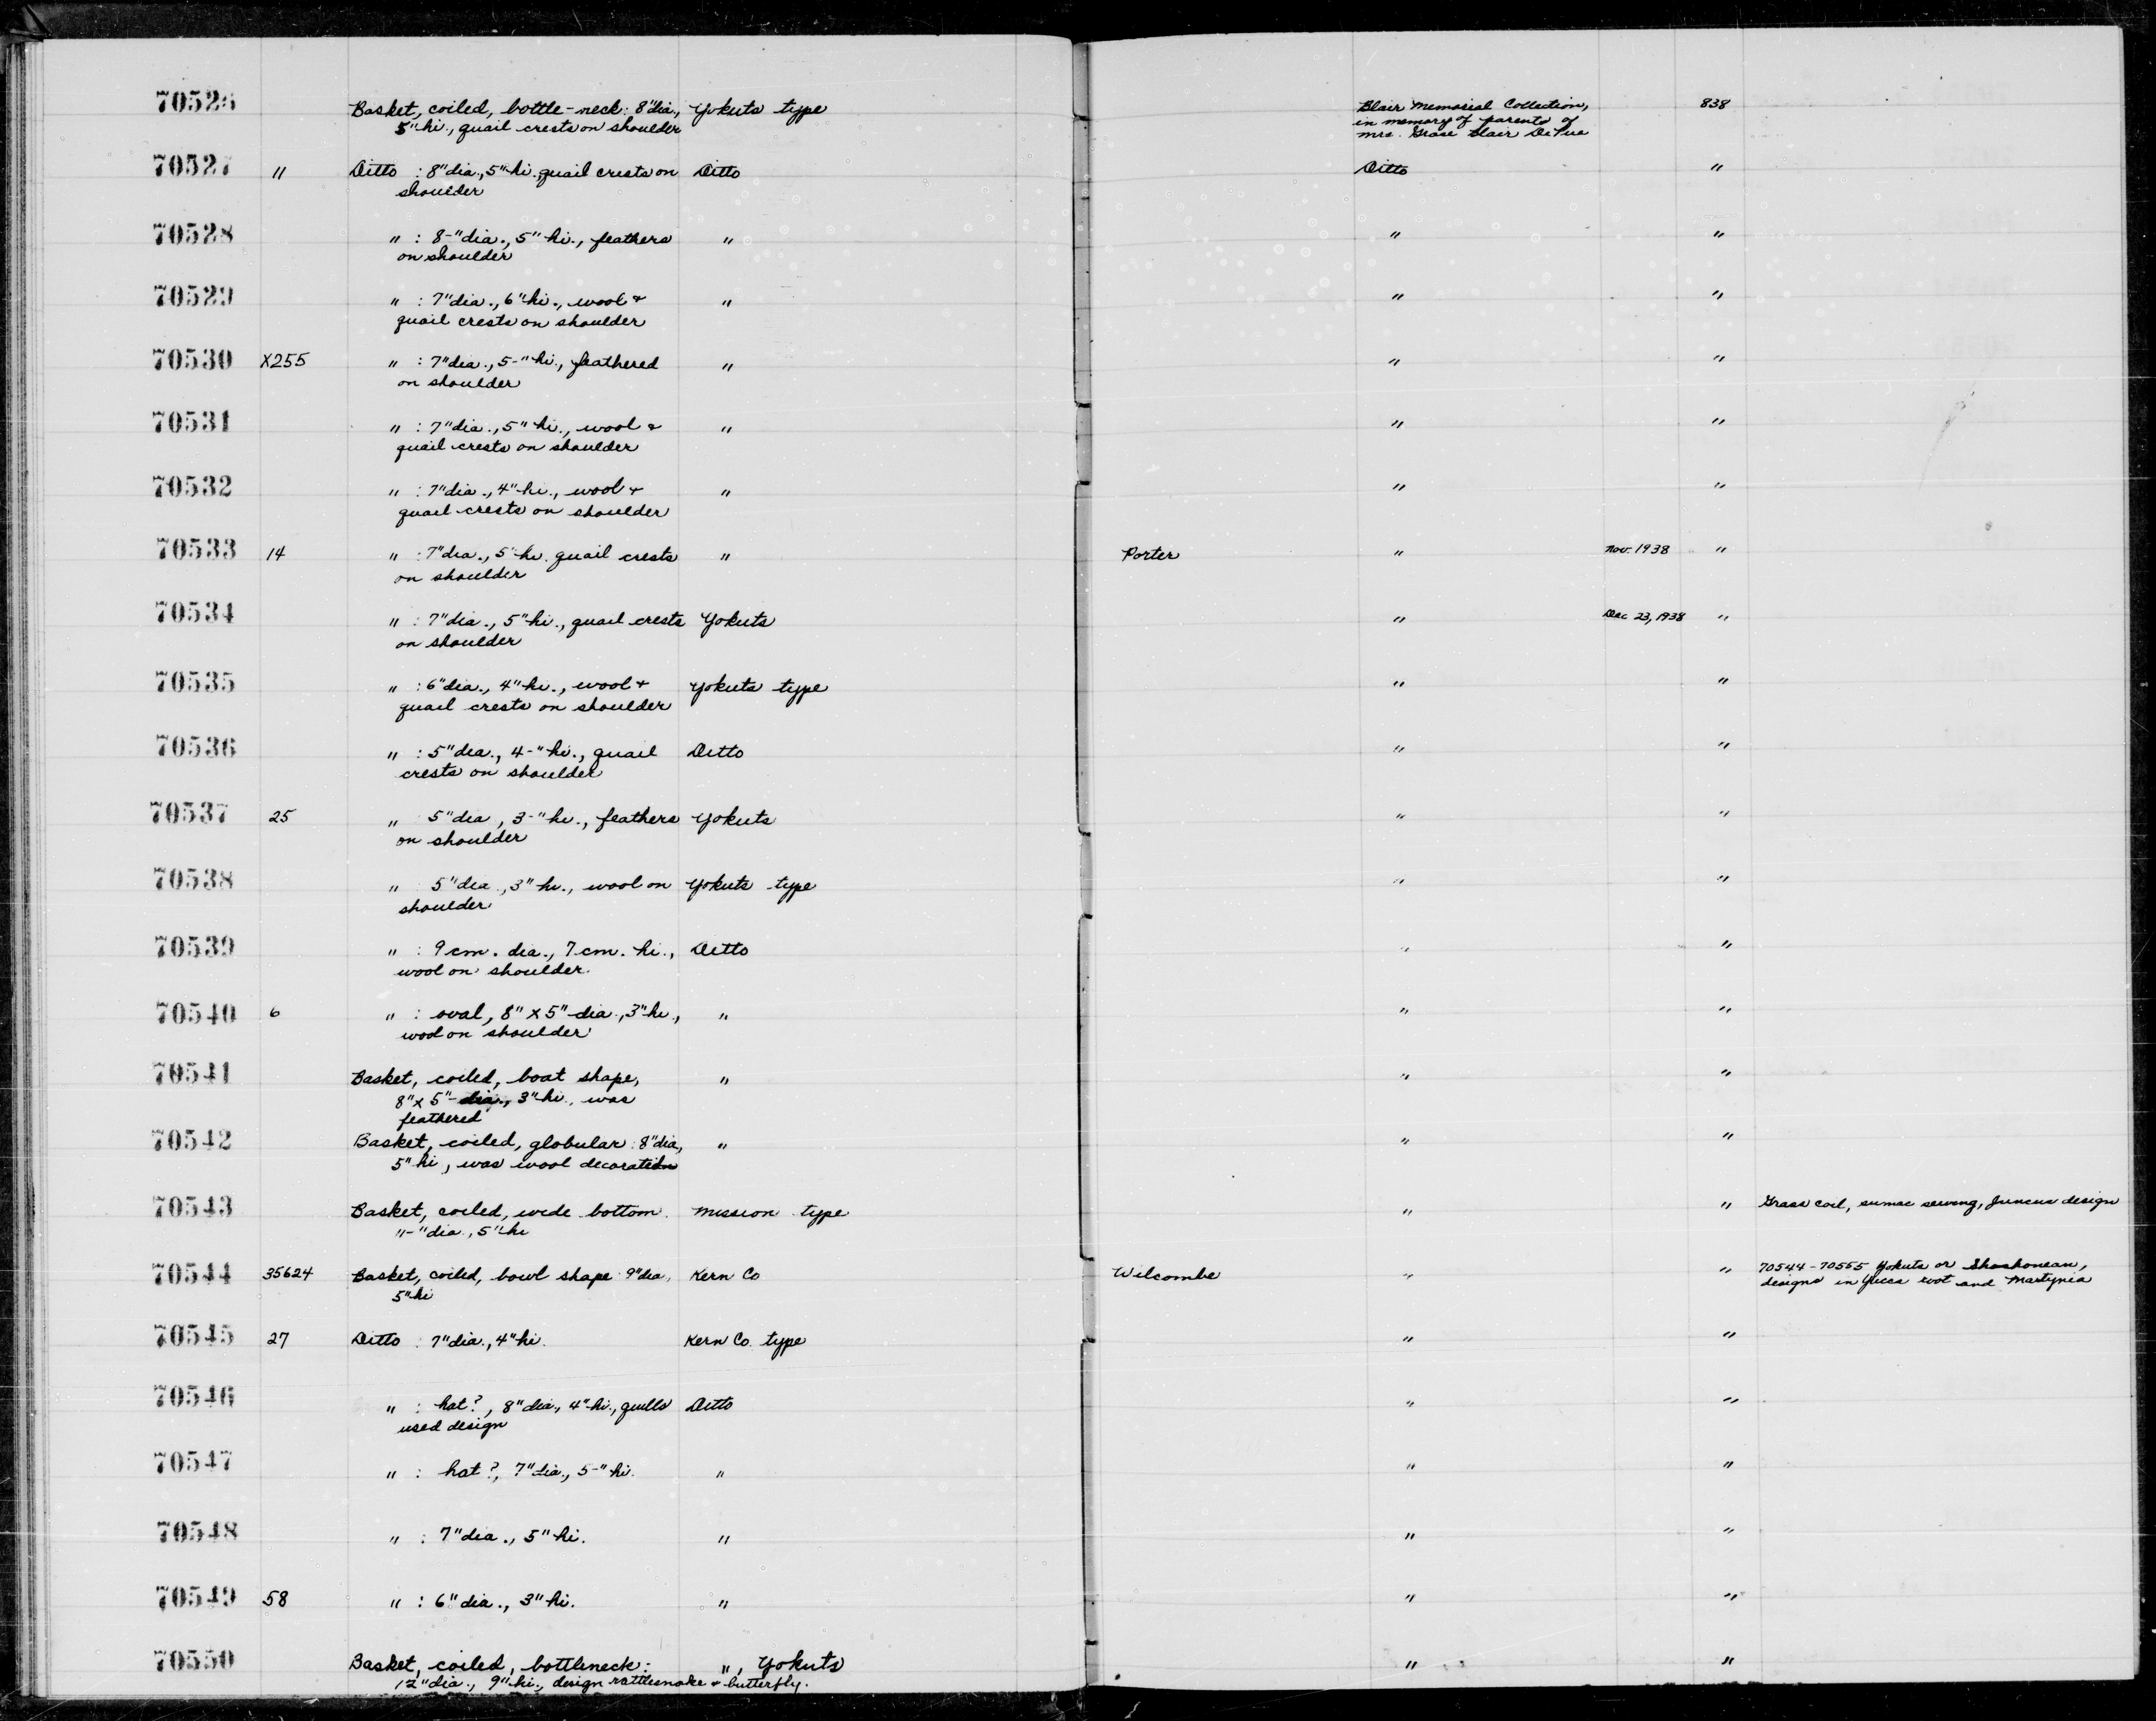 70526 Basket, coiled, bottle-neck: 8"dia., Yokuts type Blair Memorial Collection, 838
5"hi., quail crests on shoulder in memory of parents of
Mrs. Grace Blair DePue
70527 11 Ditto : 8"dia., 5"hi. quail crests on Ditto Ditto "
shoulder
70528 " : 8-"dia., 5"hi., feathers " " "
on shoulder
70529 " : 7"dia., 6"hi., wool + " " "
quail crests on shoulder
70530 X255 " : 7"dia., 5-"hi., feathered " " "
on shoulder
70531 " : 7"dia., 5"hi., wool & " " "
quail crests on shoulder
70532 " : 7"dia., 4"hi., wool + " " "
quail crests on shoulder
70533 14 " : 7"dia., 5"hi. quail crests " Porter " Nov. 1938 "
on shoulder
70534 " : 7"dia., 5"hi., quail crests Yokuts " Dec 23, 1938 "
on shoulder
70535 " : 6"dia., 4"hi., wool + Yokuts type " "
quail crests on shoulder
70536 " : 5"dia., 4-"hi., quail Ditto " "
crests on shoulder
70537 25 " 5"dia, 3-"hi., feathers Yokuts " "
on shoulder
70538 " 5"dia., 3"hi., wool on Yokuts type " "
shoulder
70539 " : 9cm. dia., 7cm. hi., Ditto " "
wool on shoulder.
70540 6 " : oval, 8" x 5" dia., 3"hi., " " "
wool on shoulder
70541 Basket, coiled, boat shape, " " "
8" x 5"- dia., 3"hi., was
feathered
70542 Basket, coiled, globular: 8"dia., " " "
5"hi, was wool decoration
70543 Basket, coiled, wide bottom. Mission type " " Grass coil, sumac sewing, Juncus design
11-"dia., 5"hi
70544 35624 Basket, coiled, bowl shape 9"dia, Kern Co Wilcombe " " 70544-70555 Yokuts or Shoshonean,
5"hi designs in Yucca root and Martynia
70545 27 Ditto : 7"dia., 4"hi. Kern Co. type " "
70546 " : hat?, 8"dia., 4"hi., quills Ditto " "
used design
70547 " : hat?, 7"dia., 5-"hi. " " "
70548 " : 7"dia., 5"hi. " " "
70549 58 " : 6"dia., 3"hi. " " "
70550 Basket, coiled, bottleneck: ", Yokuts " "
12"dia., 9"hi., design rattlesnake + butterfly.